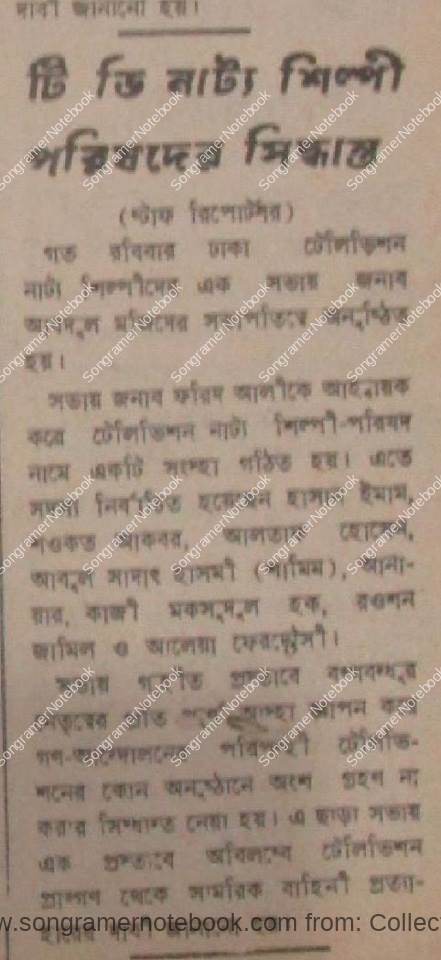 দাবী জানানো হয়।
টি ভি নাট্য শিল্পী
পরিষদের সিদ্ধান্ত
(স্টাফ রিপোর্টার)
গত রবিবার ঢাকা টেলিভিশন
নাট্য শিল্পীদের এক সভায় জনাব
আবদুল মজিদের সভাপতিত্বে অনুষ্ঠিত
হয়।
সভায় জনাব ফরিদ আলীকে আহ্বায়ক
করে টেলিভিশন নাট্য শিল্পী-পরিষদ
নামে একটি সংস্থা গঠিত হয়। এতে
সদস্য নির্বাচিত হয়েছেন হাসান ইমাম,
শওকত আকবর, আলতাফ হোসেন,
আবুল হাসমী আনো-
য়ার, কাজী মকসুদুল হক, রওশন
জামিল ও আলেয়া ফেরদৌসী।
সভায় গৃহীত প্রস্তাবে বঙ্গবন্ধুর
নেতৃত্বের প্রতি আস্থা জ্ঞাপন করে
গণ-আন্দোলনের পরিপন্থী টেলিভি-
শনের কোন অনুষ্ঠানে অংশ গ্রহণ না
করার সিদ্ধান্ত নেয়া হয়। এ ছাড়া সভায়
এক প্রস্তাবে অবিলম্বে টেলিভিশন
প্রাঙ্গণ থেকে সামরিক বাহিনী প্রত্যা-
হারের দাবী জানানো
SongramerNotebook
www.songramernotebook.com from: Collec